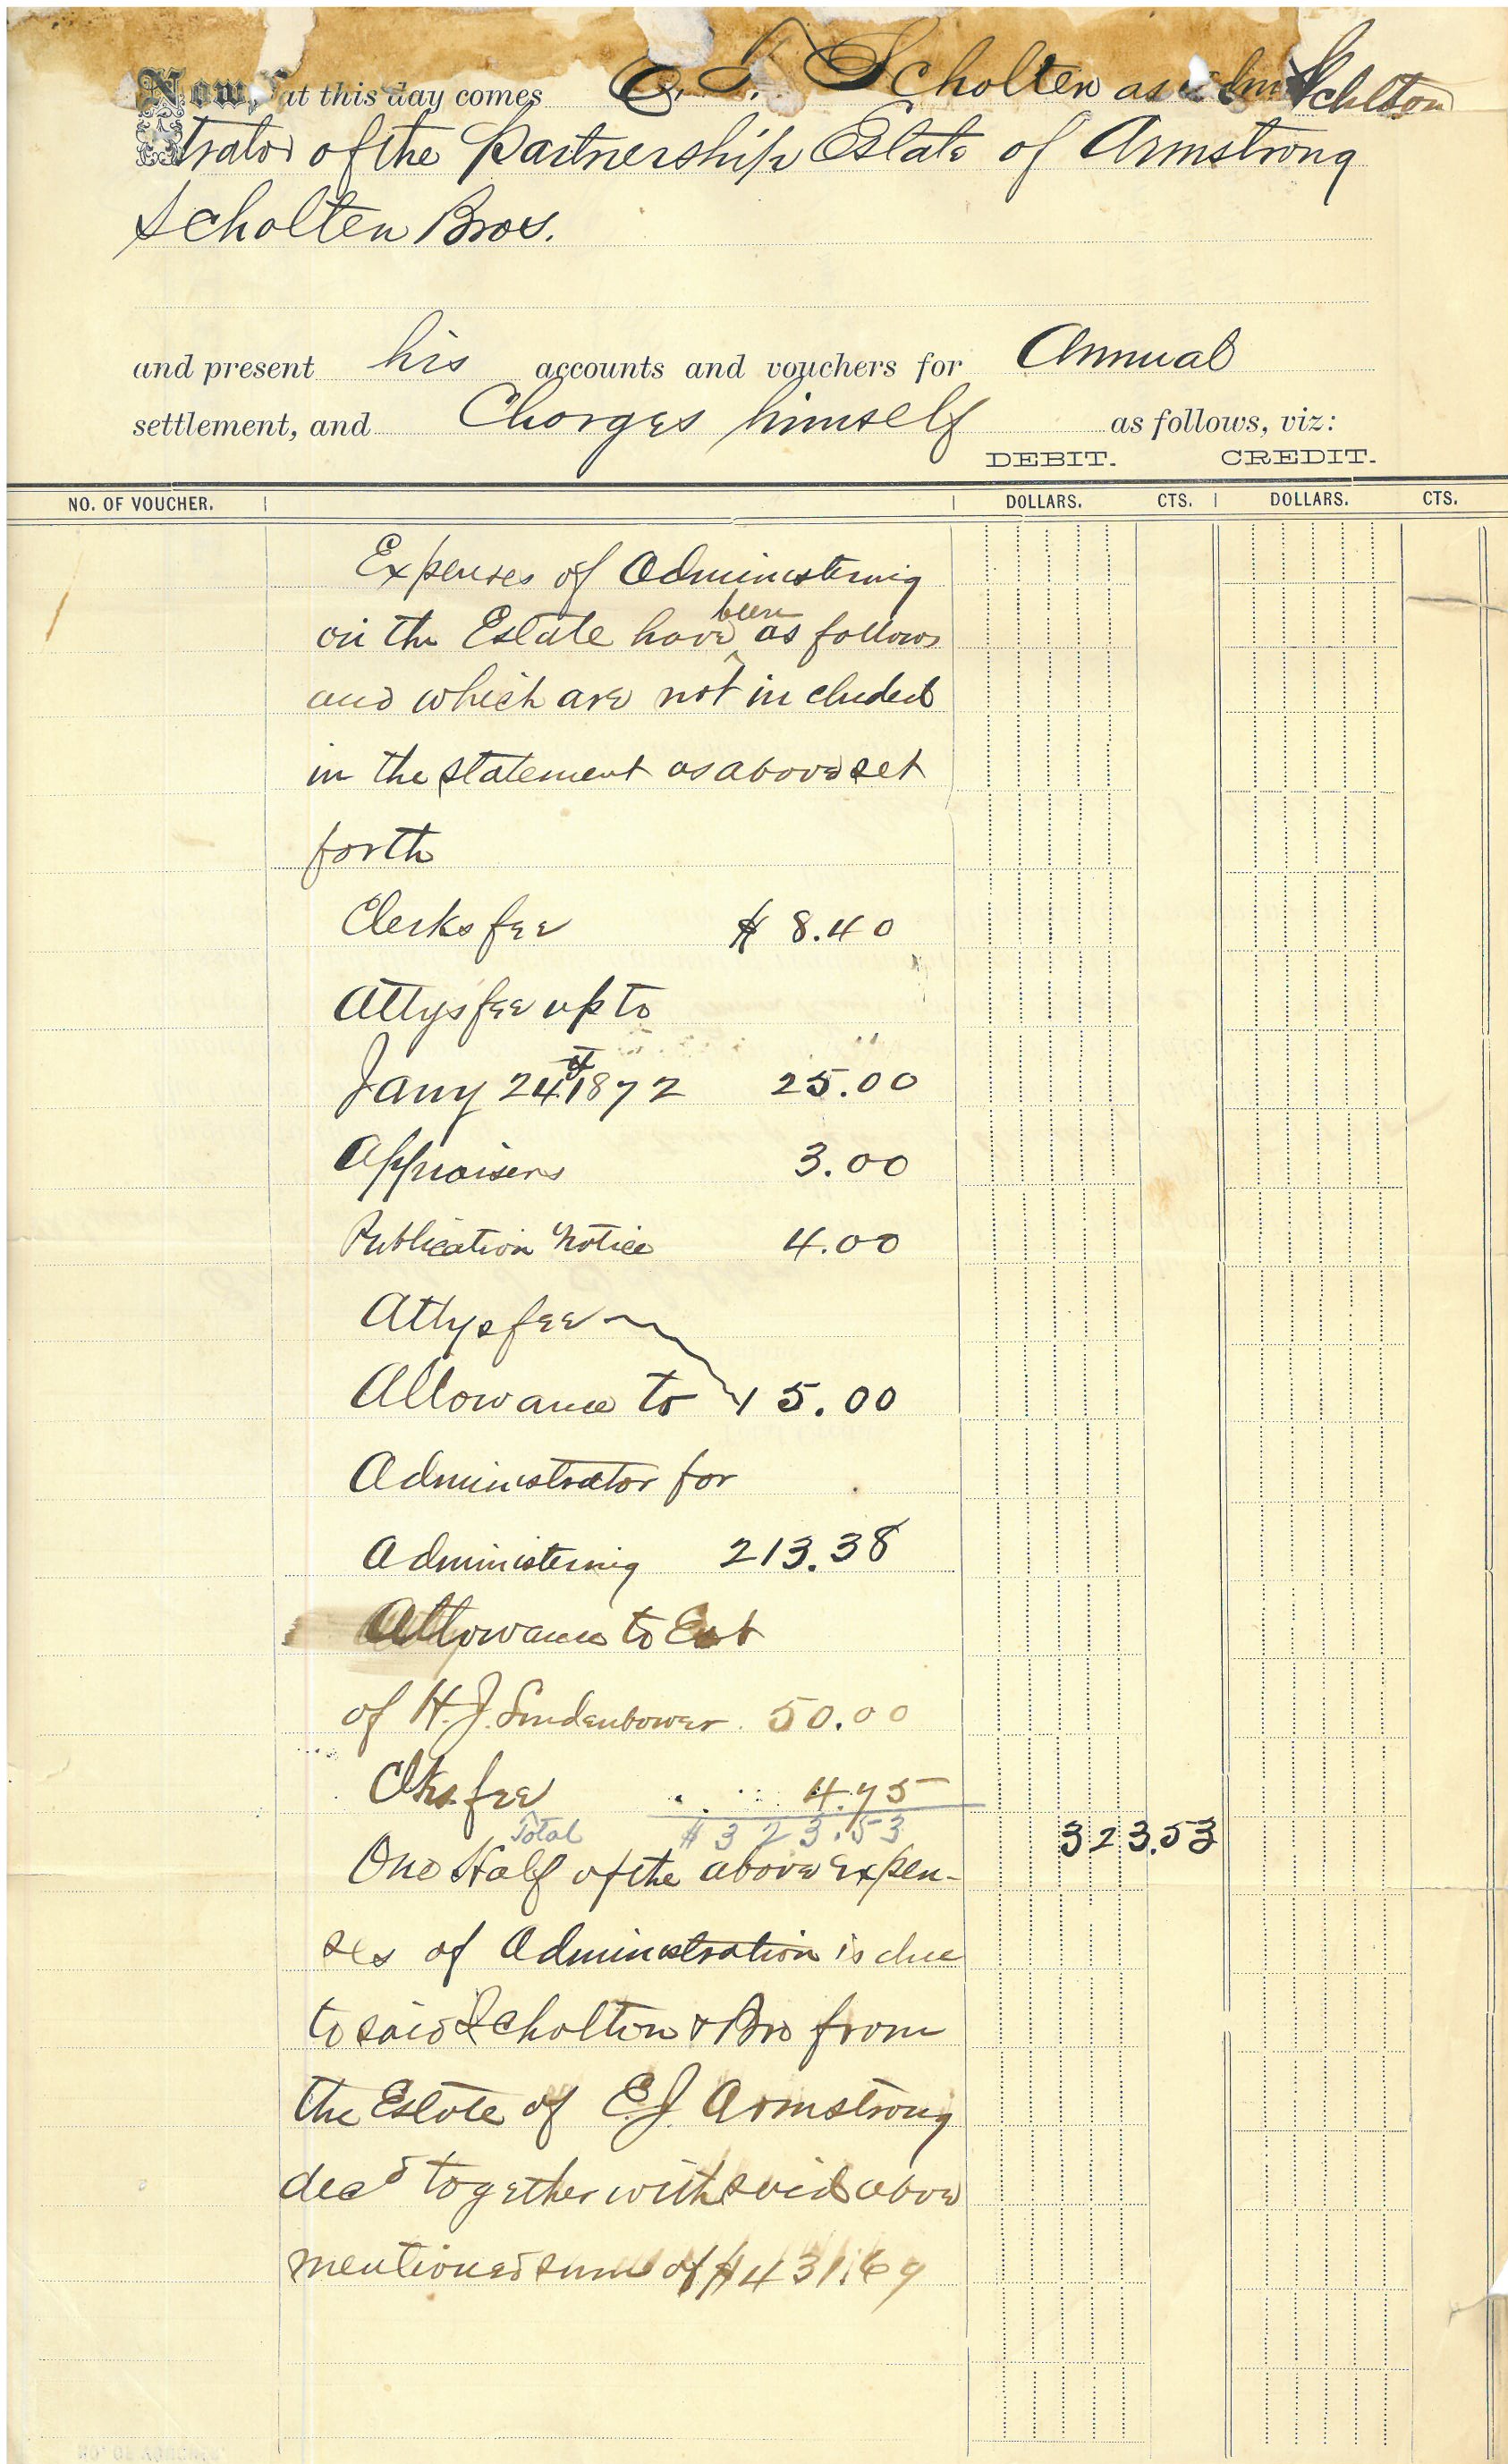 Now, at this day comes E. T. Scholten as Schlton
trator of the Partnership Estate of Armstrong
Scholten Bros.
and present his accounts and vouchers for Annual
settlement, and Charges himself as follows, viz:
DEBIT. CREDIT.
NO. OF VOUCHER. DOLLARS. CTS. DOLLARS. CTS.
Expenses of Administering
on the Estate have been as follows
and which are not included
in the statement as above set
forth
Clerks fee $ 8.40
Attys fee up to
Jany 24th 1872 25.00
Appraisers 3.00
Publication Notice 4.00
Attys fee
Allowance to 15.00
Administrator for
Administering 213.38
Allowance to Est
of H. J. Lindenbower 50.00
Clks. fee 4.75
Total $323.53 323.53
One Half of the above expen-
ses of Administration is due
to said Scholton & Bro from
the Estate of E. J Armstrong
decd together with said above
mentioned sum of $431.69